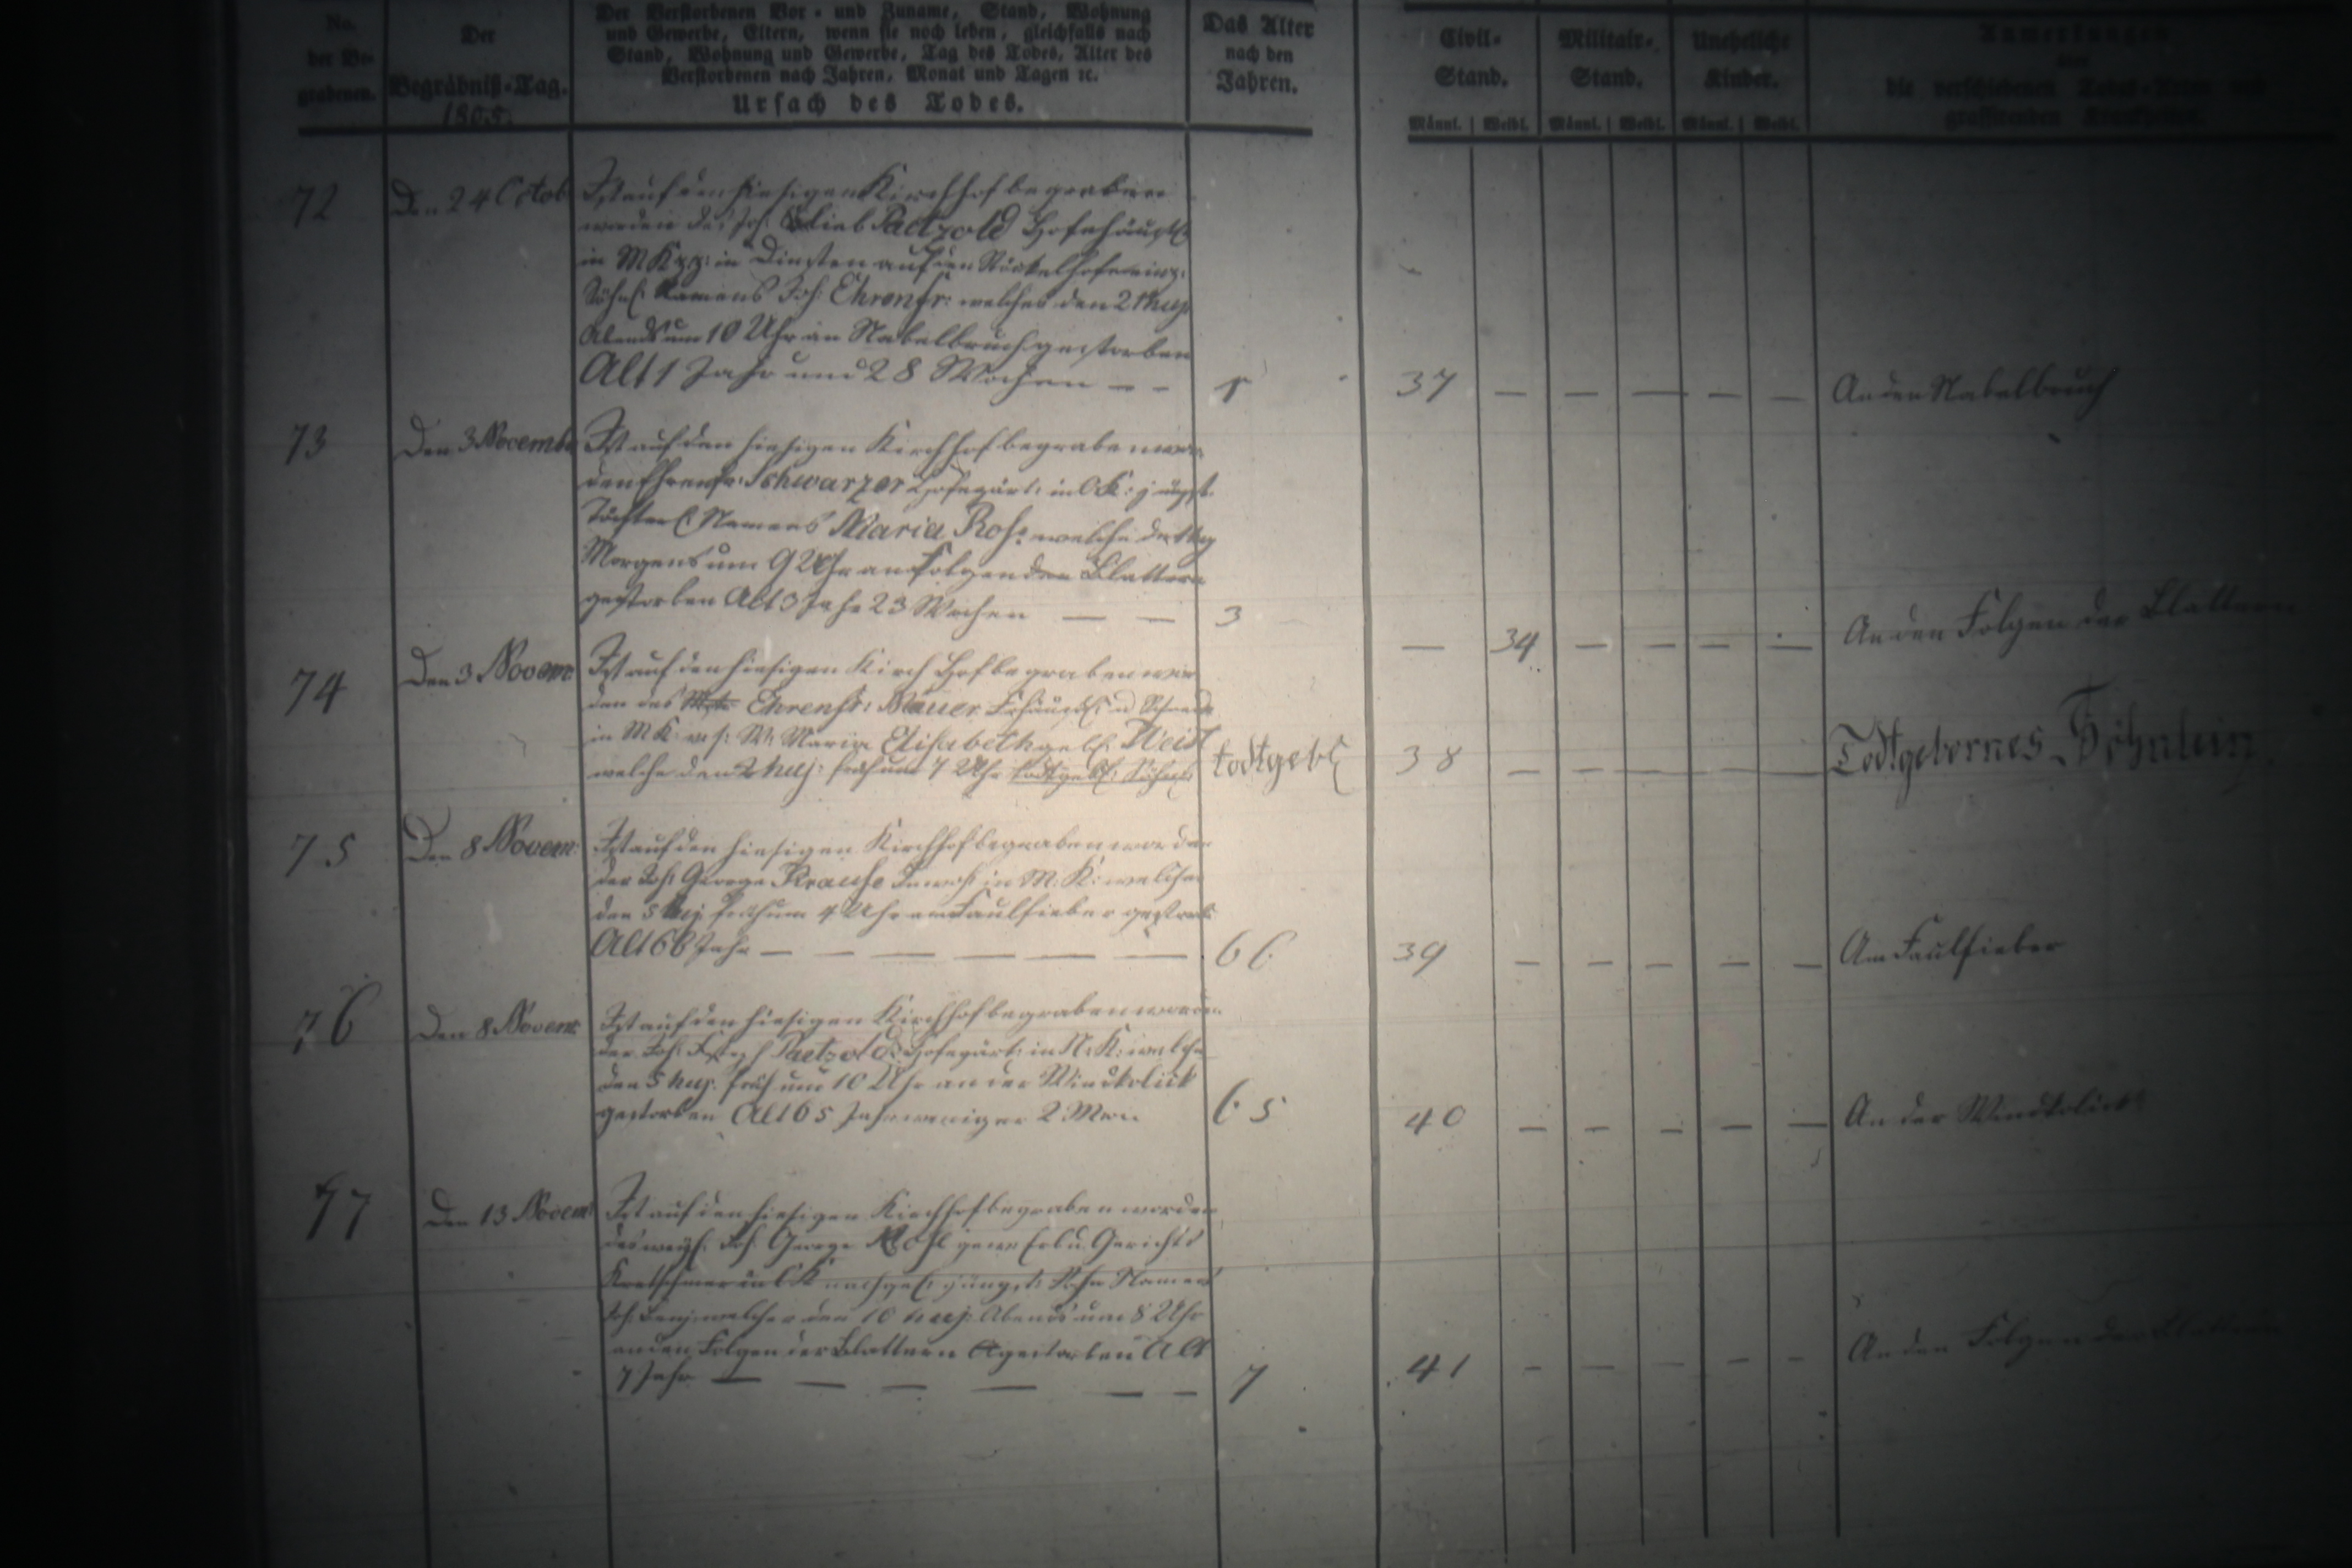 No. der Be- grabenen.
Der Begräbniß-Tag.
1805.
Der Verstorbenen Vor- und Zuname, Stand, Wohnung
und Gewerbe, Eltern, wenn sie noch leben, gleichfalls nach
Stand, Wohnung und Gewerbe, Tag des Todes, Alter des
Verstorbenen nach Jahren, Monat und Tagen ꝛc.
Ursach des Todes.
Das Alter
nach den
Jahren.
Civil-
Stand.
Militair-
Stand.
Uneheliche
Kinder.
Anmerkungen
über
die verschiedenen Todes-Arten und
grassirenden Krankheiten.
Männl. Weibl. Männl. Weibl. Männl. Weibl.
72 Den 24 Octob Ist auf den hiesigen Kirchhof begraben
worden des Joh. Paetzold
in M K in Diensten auf den
Söhnl. Namens Joh: Ehrenfr: welches den 21 huj:
Abends um 10 Uhr am Nabelbruch gestorben
Alt 1 Jahr und 28 Wochen — — 1 37 — — — — — An den Nabelbruch
73 Den 3 Novembr Ist auf den hiesigen Kirchhof begraben wor-
den Ehrenfr: Schwarzer Hofegärt: in O K: jüngst.
Töchterl. Namens Maria Ros: welche den huj
Morgens um 9 Uhr an Folgen der Blattern
gestorben Alt 3 Jahr 23 Wochen — — 3 — 34 — — — — An den Folgen der Blattern
74 Den 3 Novem: Ist auf den hiesigen Kirch Hof begraben wor
den des Ehrenfr:
in M K: Maria Elisabeth geb: Weist
welche den 2 huj: früh um 7 Uhr todtgeb: Söhnl: todtgeb: 38 — — — — — Todtgebornes Söhnlein
75 Den 8 Novem: Ist auf den hiesigen Kirchhof begraben worden
der Joh: George Krause Inwoh: in M: K: welcher
den 5 huj früh um 4 Uhr am Faulfieber gestorb:
Alt 66 Jahr — — — — — — 66 39 — — — — — Am Faulfieber
76 Den 8 Novem: Ist auf den hiesigen Kirchhof begraben worden
der Joh: Paetzold Hofegärt: in N: K: welcher
den 5 huj. früh um 10 Uhr an der Windkolick
gestorben Alt 65 Jahr weniger 2 Mon 65 40 — — — — — An der Windkolick
77 Den 13 Novem: Ist auf den hiesigen Kirchhof begraben worden
des weyl. Joh. George gew: Erb u. Gerichts
Kretschmer in O K nachgel: jüngst: Sohn Namens
Joh: Benj: welcher den 10 huj: Abends um 8 Uhr
an den Folgen der Blattern gestorben Alt
7 Jahr — — — — — — 7 41 — — — — — An den Folgen der Blattern